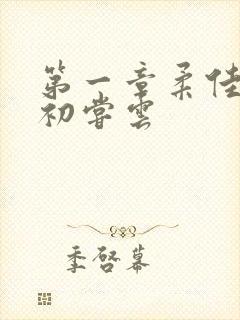 第一章柔佳
初尝云
季啓幕